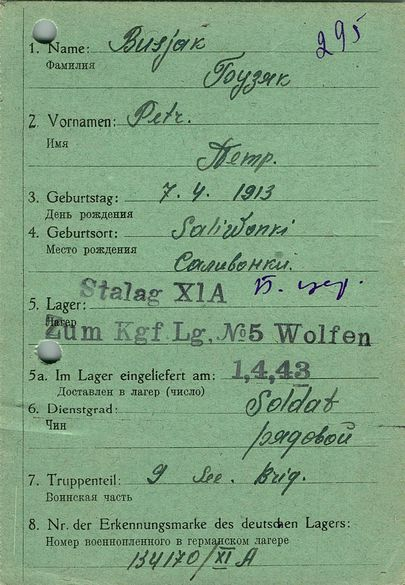 295
1. Name: Busjak
Фамилия
Бузяк
2. Vornamen: Petr.
Имя
Петр.
3. Geburtstag: 7. 4. 1913
День рождения
4. Geburtsort: Saliwonki
Место рождения
Саливонки.
Stalag XI A
5. Lager:
Лагерь
Zum Kgf Lg. №5 Wolfen
5a. Im Lager eingeliefert am: 1,4,43
Доставлен в лагер (число)
6. Dienstgrad: Soldat
Чин
рядовой
7. Truppenteil: 9 See. Brig.
Воинская часть
8. Nr. der Erkennungsmarke des deutschen Lagers:
Номер военнопленного в германском лагере
134170/XI A